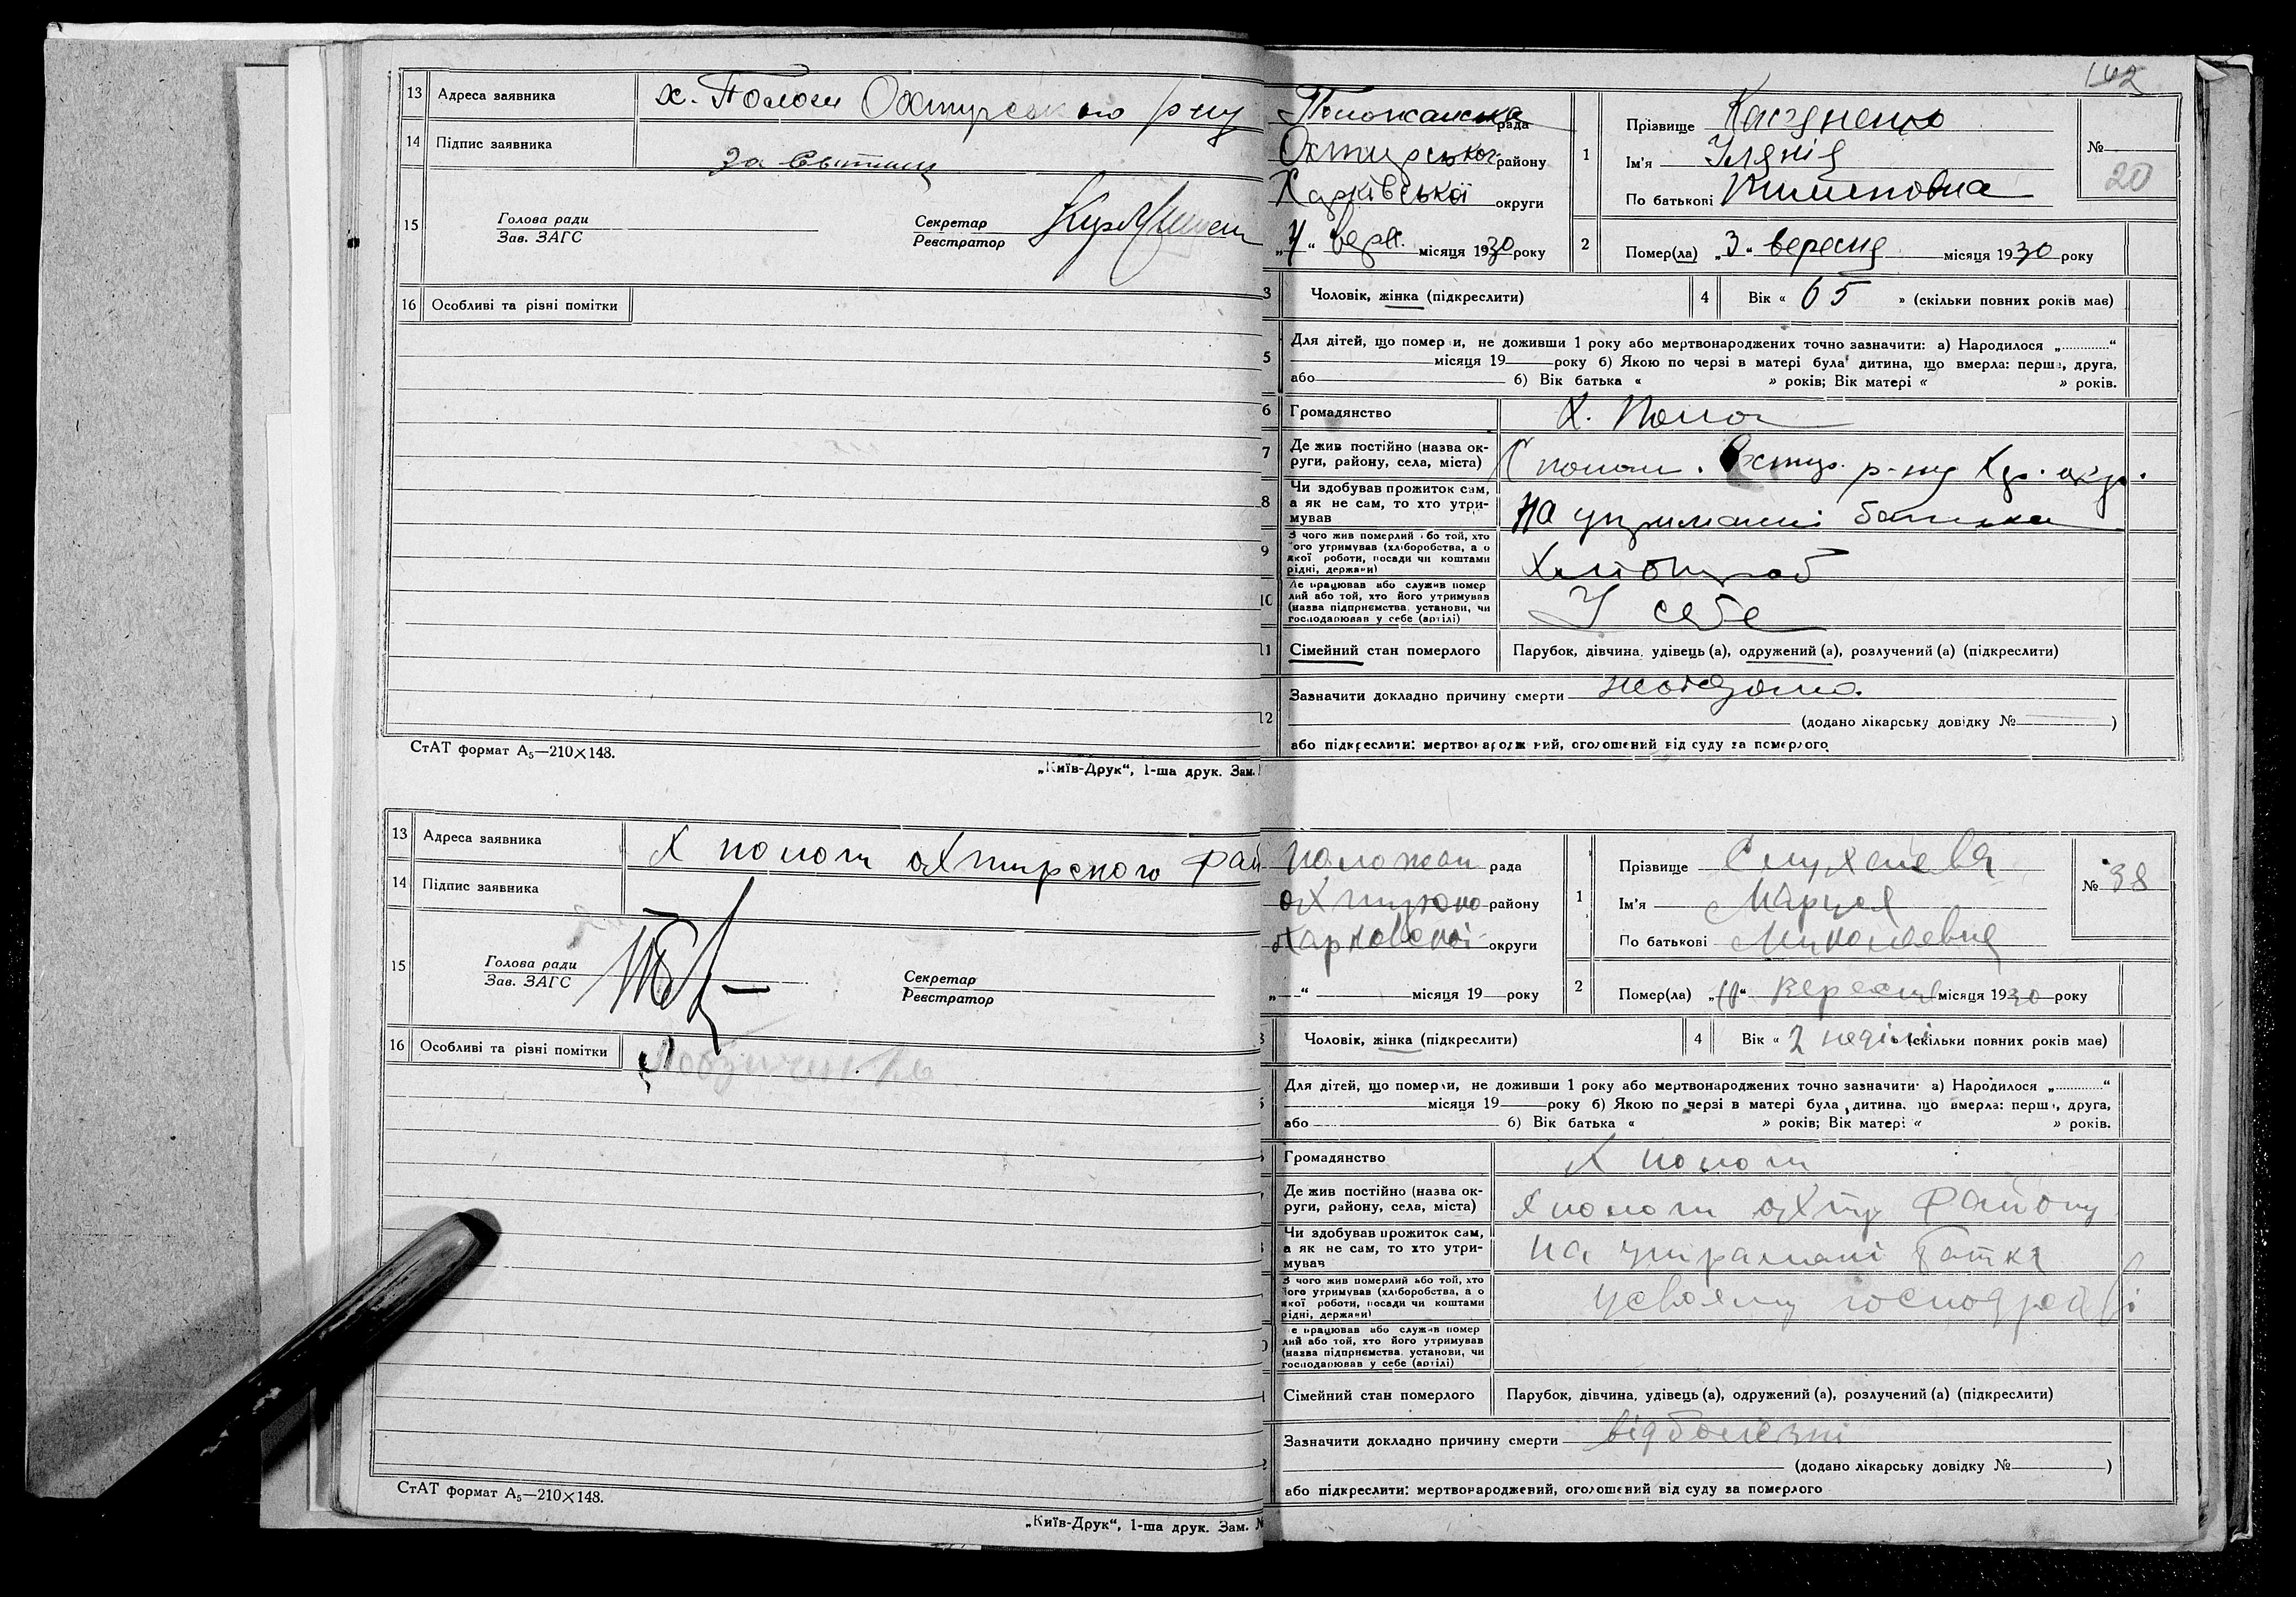 13 Адреса заявника х. Пологи Охтирського р-ну
14 Підпис заявника
За
15 Голова ради
Зав. ЗАГС
Секретар
Реєстратор
16 Особливі та різні помітки
СтАТ формат А5—210×148.
„Київ-Друк“, 1-ша друк. Зам.
13 Адреса заявника Х пологи охтирского рай
14 Підпис заявника
15 Голова ради
Зав. ЗАГС
Секретар
Реєстратор
16 Особливі та різні помітки
СтАТ формат А5—210×148.
„Київ-Друк“, 1-ша друк. Зам. №
142
рада
Охтирського району
Харківської округи
„4“ верес. місяця 1930 року
1 Прізвище
Ім'я
По батькові
№
20
2 Помер(ла) „3“ вересня місяця 1930 року
3 Чоловік, жінка (підкреслити)
4 Вік « 65 » (скільки повних років має)
5 Для дітей, що померли, не доживши 1 року або мертвонароджених точно зазначити: а) Народилося „.............“
місяця 19 року б) Якою по черзі в матері була дитина, що вмерла: перша, друга,
або б) Вік батька « » років; Вік матері « » років.
6 Громадянство Х.
7 Де жив постійно (назва ок-
руги, району, села, міста) Охтир. р-ну Хар. окр.
8 Чи здобував прожиток сам,
а як не сам, то хто утри-
мував на утриманні батька
9 З чого жив померлий або той, хто
його утримував (хліборобства, а о
якої роботи, посади чи коштами
рідні, держави) Хлібороб
10 Де працював або служив помер
лий або той, хто його утримував
(назва підприємства, установи, чи
господарював у себе (артілі) У себе
11 Сімейний стан померлого Парубок, дівчина, удівець (а), одружений (а), розлучений (а) (підкреслити)
12 Зазначити докладно причину смерти невідома.
(додано лікарську довідку № )
або підкреслити: мертвонароджений, оголошений від суду за померлого
Положан рада
району
округи
„ “ місяця 19 року
1 Прізвище
Ім'я
По батькові Миколаевна
№ 38
2 Помер(ла) вересня місяця 1930 року
Чоловік, жінка (підкреслити)
4 Вік « 2 неділі » (скільки повних років має)
Для дітей, що померли, не доживши 1 року або мертвонароджених точно зазначити: а) Народилося „.............“
місяця 19 року б) Якою по черзі в матері була дитина, що вмерла: перша, друга,
або б) Вік батька « » років; Вік матері « » років.
Громадянство х пологи
Де жив постійно (назва ок-
руги, району, села, міста) х пологи охтир району
Чи здобував прожиток сам,
а як не сам, то хто утри-
мував на батка
З чого жив померлий або той, хто
його утримував (хліборобства, а о
якої роботи, посади чи коштами
рідні, держави) усвоему
е працював або служив помер
лий або той, хто його утримував
(назва підприємства, установи, чи
господарював у себе (артілі)
Сімейний стан померлого Парубок, дівчина, удівець (а), одружений (а), розлучений (а) (підкреслити)
Зазначити докладно причину смерти від болезні
(додано лікарську довідку № )
або підкреслити: мертвонароджений, оголошений від суду за померлого